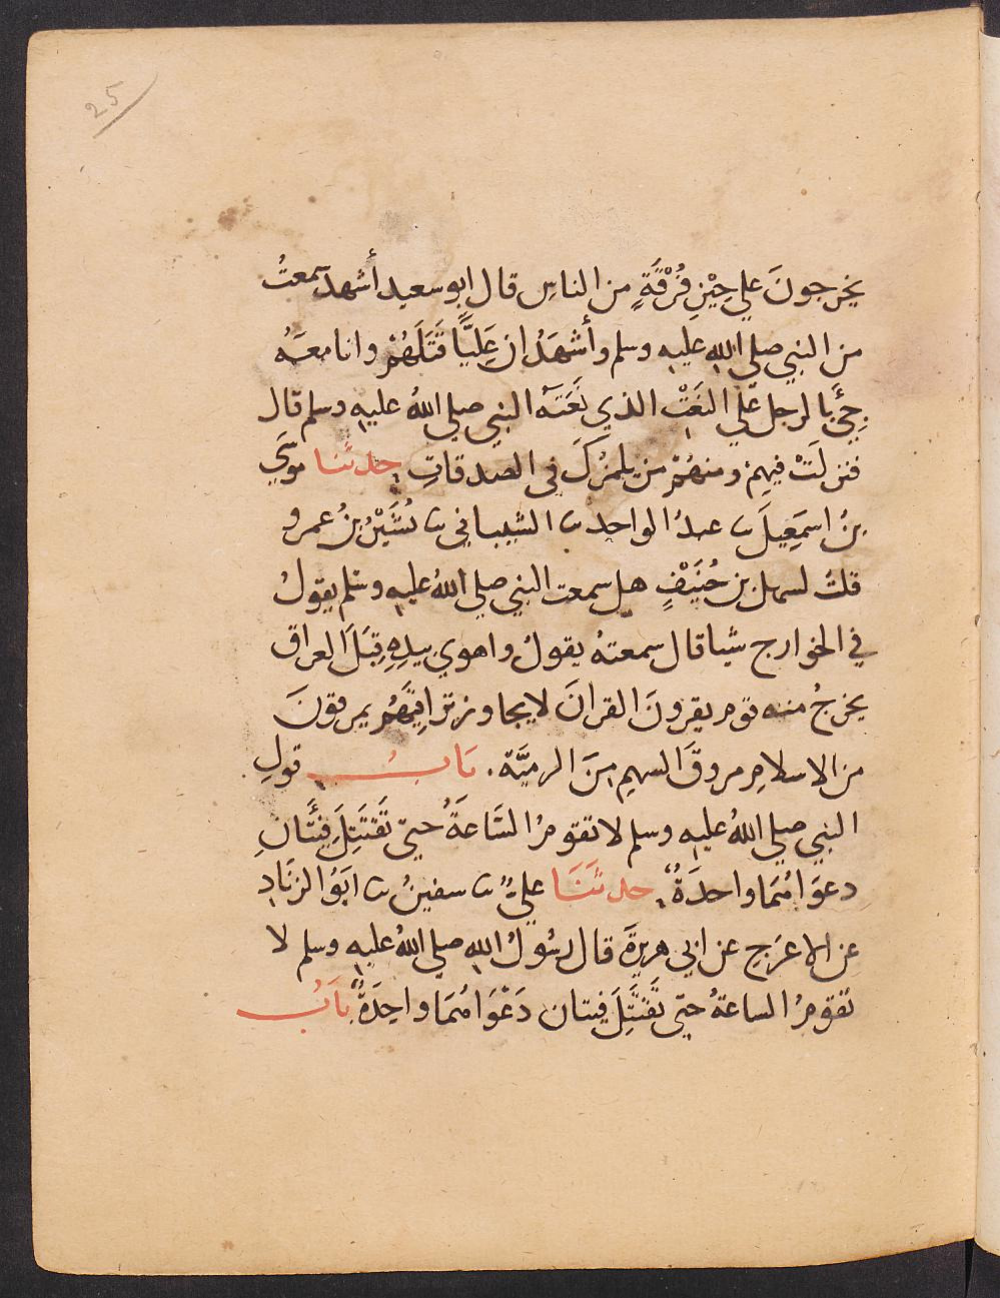 25
يخرجونَ علي حِيْنِ فُرْقَةٍ من الناسِ قال ابو سعيد أشهد سمعتُ
من النبي صلي الله عليه وسلم وأشهَدُ ان عَلِيًّا قَتَلَهُمْ وانا معَهُ
جِئَ بالرجل علي النَعْتِ الذي نَعَتَهُ النبي صلي اللهُ عليهِ وسلم قال
فنزلَتْ فيهمْ ومنهُمْ من يلمزكَ في الصدقاتِ حدثنا موسَي
بنُ اسمَعِيلَ ثنا عبدُ الواحد ثنا الشيباني ثنا يُسَيْرُ بنُ عمرو
قلتُ لسهل بن حُنَيْفٍ هل سمعت النبي صلي اللهُ عليه وسلم يقولُ
في الخوارج شيا قال سمعتهُ يقولُ واهوي بيدِهِ قِبَلَ العراق
يخرجُ منه قوم يقرونَ القرانَ لا يجاوز تراقِيَهُم يمرقونَ
من الاسلامِ مروقَ السهم مِنَ الرميَّة. بَابُ قولِ
النبي صلي اللهُ عليه وسلم لا تقومُ السَّاعةُ حتي تَقْتَتِلَ فِئَتَانِ
دعوَاهُمَا واحدَةٌ حدثَنَا عليٌّ ثنا سفينُ ثنا ابَوُ الزنَادِ
عن الاعرَجِ عن ابي هريرةَ قال رسُولُ اللهِ صلي اللهُ عليه وسلم لا
تقومُ الساعةُ حتي تَقْتَتِلَ فِيتان دَعْوَاهُمَا واحِدَةٌ بَابُ